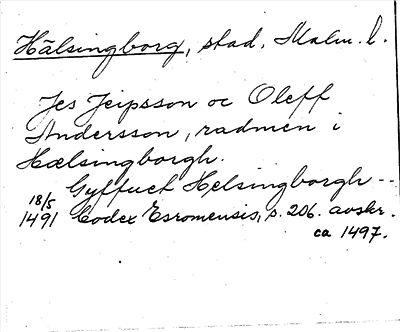 Hälsingborg, stad, Malm. l.
Jes Jeipsson oc Oleff
Andersson, radmen i
Hælsingborgh.
Gyffuet Helsingborgh --
18/5 1491 Codex Esromensis, s. 206. avskr.
ca 1497.